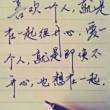 喜欢一个人,就是
在一起很开心,爱一
个人,就是即使不
开心,也想在一起。